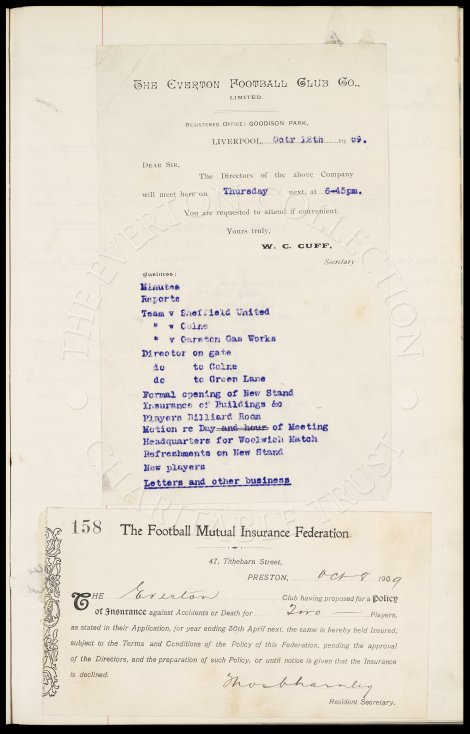 THE EVERTON FOOTBALL CLUB CO.,
LIMITED.
REGISTERED OFFICE: GOODISON PARK,
LIVERPOOL, Octr 12th 1909.
DEAR SIR,
The Directors of the above Company
will meet here on Thursday next, at 6-45pm.
You are requested to attend if convenient.
Yours truly,
W. C. CUFF,
Secretary
Business:
Minutes
Reports
Team v Sheffield United
" v Colne
" v Garston Gas Works
Director on gate
do to Colne
do to Green Lane
Formal opening of New Stand
Insurance of Buildings &c
Players Billiard Room
Motion re Day and hour of Meeting
Headquarters for Woolwich Match
Refreshments on New Stand
New players
Letters and other business
THE EVERTON COLLECTION
CHARITABLE TRUST
158 The Football Mutual Insurance Federation.
47, Tithebarn Street,
PRESTON, Oct 8 1909
THE Everton Club having proposed for a Policy
of Insurance against Accidents or Death for Two Players,
as stated in their Application, for year ending 30th April next, the same is hereby held Insured,
subject to the Terms and Conditions of the Policy of this Federation, pending the approval
of the Directors, and the preparation of such Policy, or until notice is given that the Insurance
is declined.
Thos Charnley
Resident Secretary.